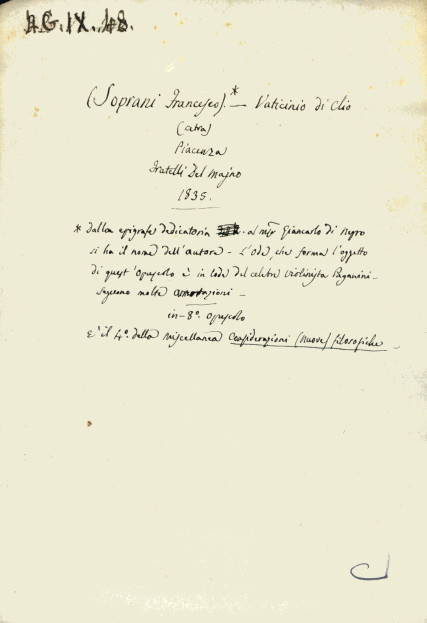 4G.IX.48.
(Soprani Francesco).* — Vaticinio di Clio
Piacenza
Fratelli Del Majno
1835.
* Dalla epigrafe dedicatoria al Giancarlo di Negro
si ha il nome dell'autore — L'Ode, che forma l'oggetto
di quest'opuscolo è in lode del celebre violinista Paganini.
Seguono molte annotazioni —
in-8º. opuscolo
E' il 4º. della miscellanea Considerazioni (nuove) filosofiche